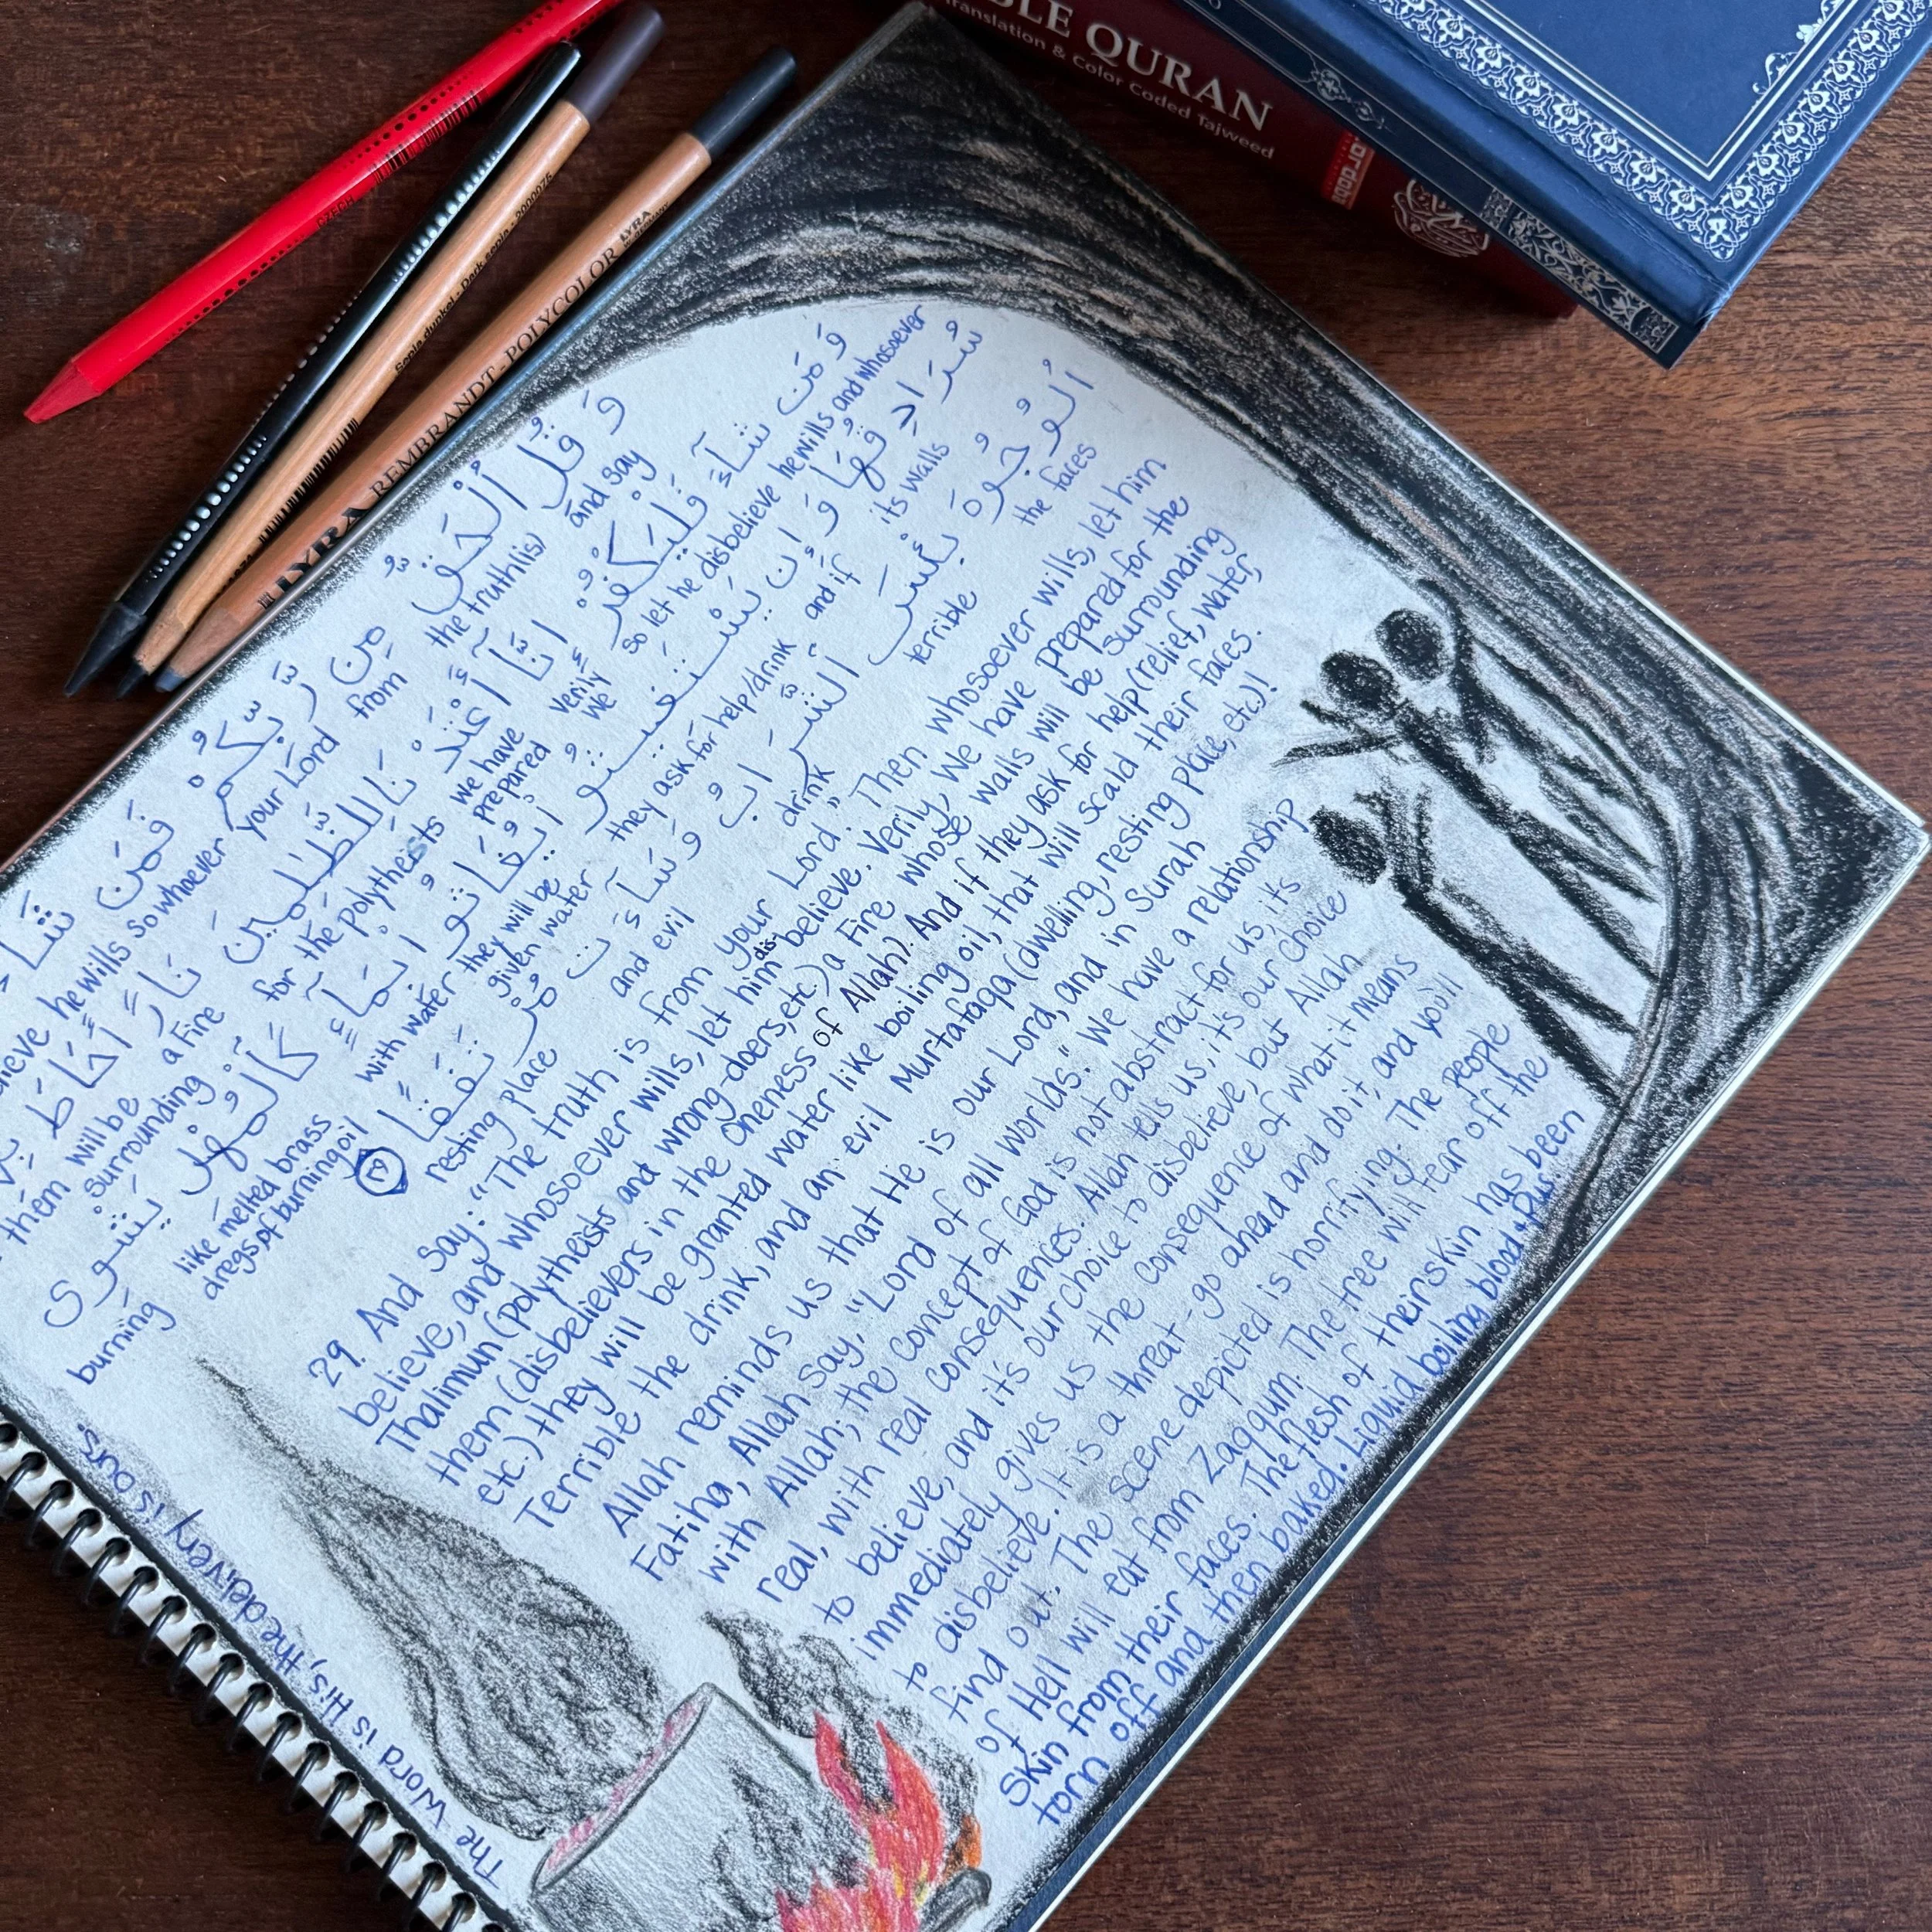 BLE QURAN
Translation & Color Coded Tajweed
CZECH
Sepia dunkel - Dark sepia - 2000075
LYRA REMBRANDT - POLYCOLOR LYRA
وَقُلِ ٱلْحَقُّ مِن رَّبِّكُمْ فَمَن شَآءَ
and say the truth(is) from your Lord so whoever he wills
وَمَن شَآءَ فَلْيَكْفُرْ إِنَّآ أَعْتَدْنَا لِلظَّٰلِمِينَ نَارًا أَحَاطَ
and whosoever he wills so let he disbelieve verily We we have prepared for the polytheists a Fire will be surrounding them
سُرَادِقُهَا وَإِن يَسْتَغِيثُوا۟ يُغَاثُوا۟ بِمَآءٍ كَٱلْمُهْلِ يَشْوِى
its walls and if they ask for help/drink they will be given water with water like melted brass dregs of burning oil burning
ٱلْوُجُوهَ بِئْسَ ٱلشَّرَابُ وَسَآءَتْ مُرْتَفَقًا
the faces terrible drink and evil resting place
29. And say: "The truth is from your Lord." Then whosoever wills, let him
believe, and whosoever wills, let him disbelieve. Verily, We have prepared for the
Thalimun (polytheists and wrong-doers, etc.) a Fire whose walls will be surrounding
them (disbelievers in the Oneness of Allah). And if they ask for help (relief, water,
etc.) they will be granted water like boiling oil, that will scald their faces.
Terrible the drink, and an evil Murtafaqa (dwelling, resting place, etc.)!
Allah reminds us that He is our Lord, and in Surah
Fatiha, Allah say, "Lord of all worlds." We have a relationship
with Allah; the concept of God is not abstract for us, its
real, with real consequences. Allah tells us, it's our choice
to believe, and it's our choice to disbelieve, but Allah
immediately gives us the consequence of what it means
to disbelieve. It is a threat - go ahead and do it, and you'll
find out. The scene depicted is horrifying. The people
of Hell will eat from Zaqqum. The tree will tear off the
skin from their faces. The flesh of their skin has been
torn off and then baked. Liquid boiling blood + pus.
The Word is His, the delivery is ours.